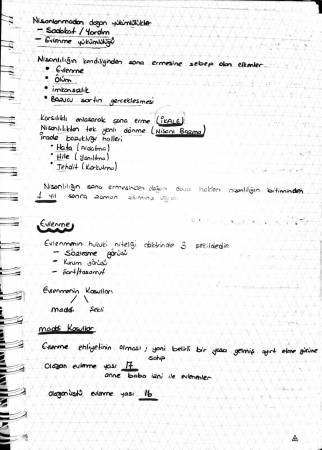 Nişanlanmadan doğan yükümlülükler
- Sadakat / Yardım
- Evlenme yükümlülüğü
Nişanlılığın kendiliğinden sona ermesine sebep olan etkenler
• Evlenme
• Ölüm
• imkansızlık
• Bozucu şartın gerçekleşmesi
Karşılıklı anlaşarak sona erme (İKALE)
Nişanlılıktan tek yanlı dönme (Nişanı Bozma)
İrade bozukluğu halleri
• Hata (Yanılma)
• Hile (Yanıltma)
• Tehdit (Korkutma)
Nişanlılığın sona ermesinden doğan dava hakları nişanlılığın bitiminden
1 yıl sonra zaman aşımına uğrar.
Evlenme
Evlenmenin hukuki niteliği 3 şekildedir
- Sözleşme görüşü
- Kurum görüşü
- Şart tasarruf
Evlenmenin Koşulları
maddi Şekli
maddi Koşullar
Evlenme ehliyetinin olması; yani belirli bir yaşa gelmiş ayırt etme gücüne
sahip
Olağan evlenme yaşı 17
anne baba izni ile evlenmeler
olağanüstü evlenme yaşı 16